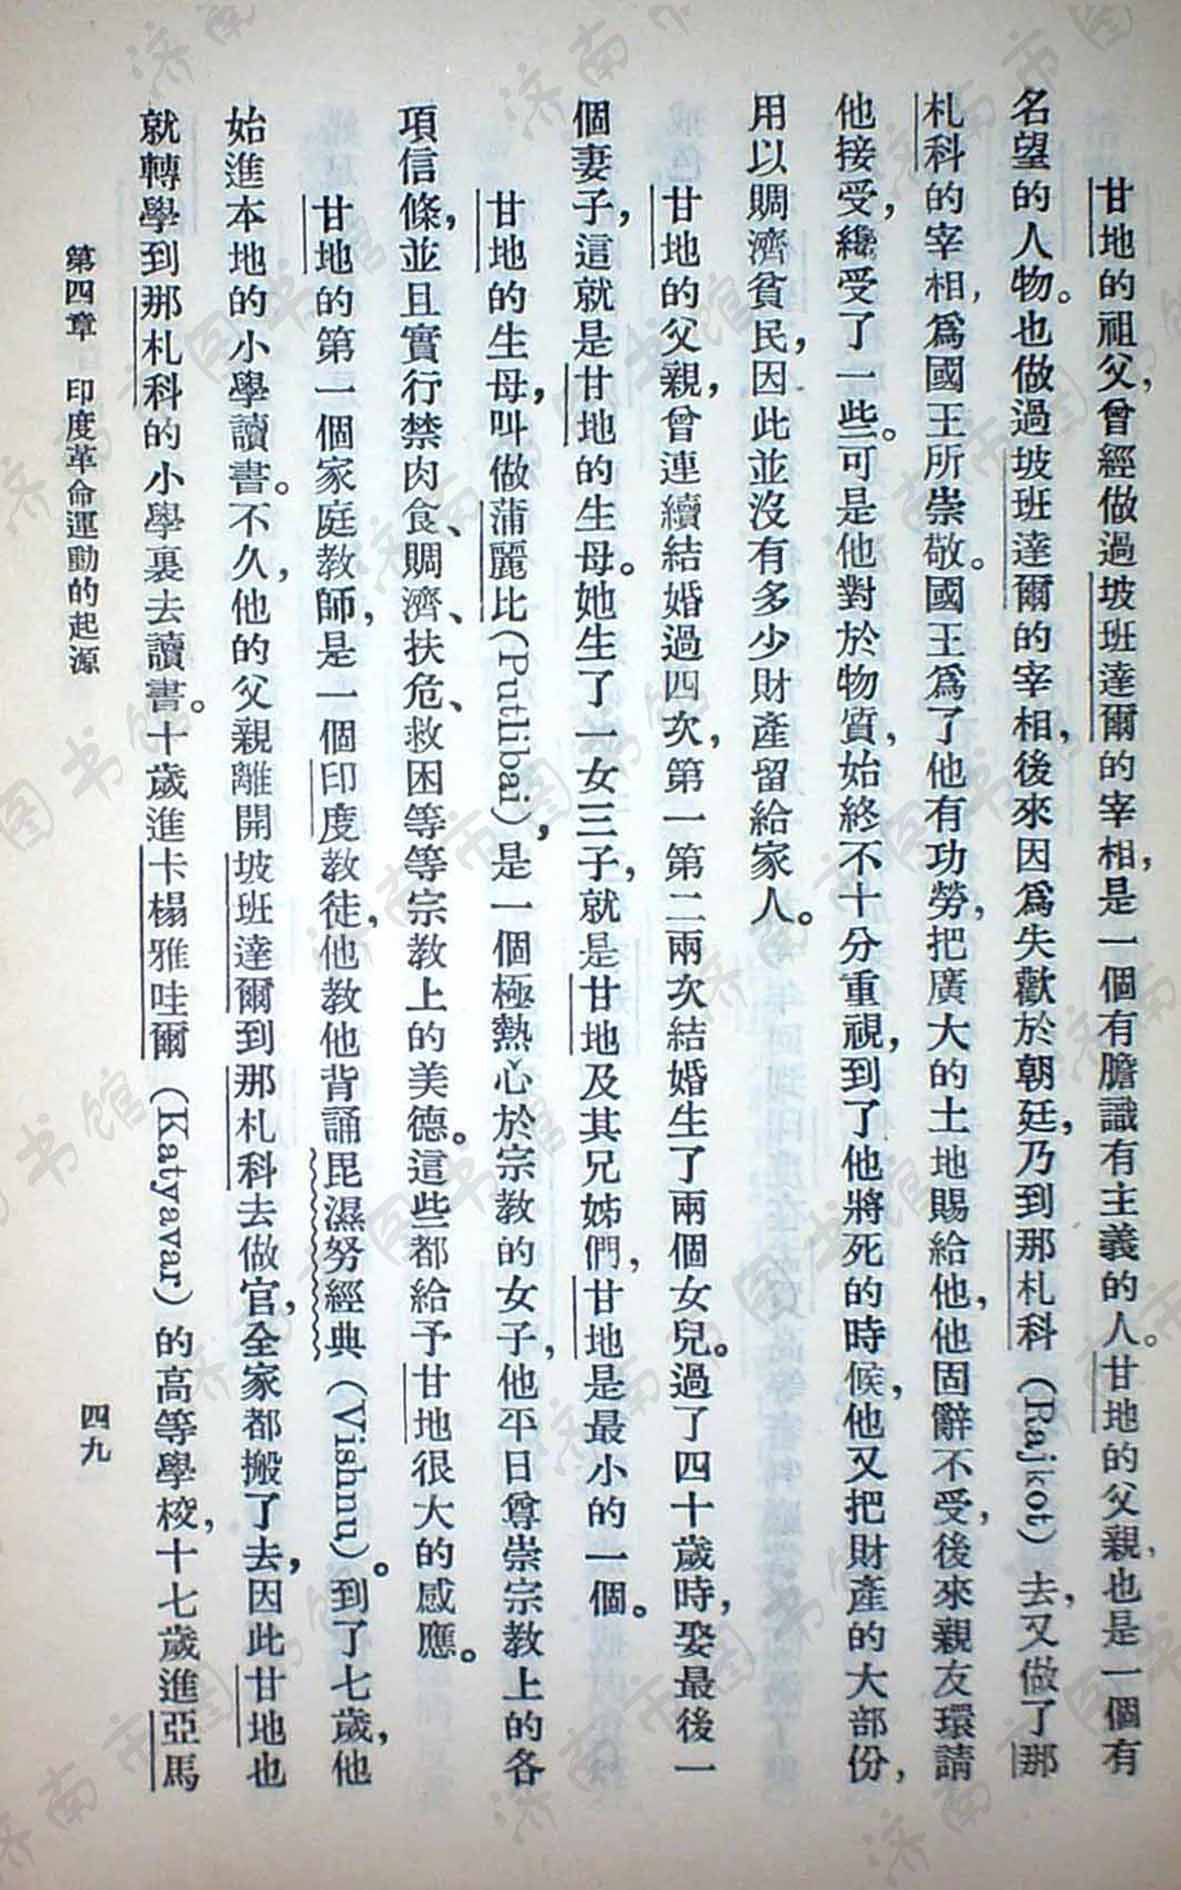 甘地的祖父，曾經做過坡班達爾的宰相，是一個有膽識有主義的人。甘地的父親，也是一個有
名望的人物。也做過坡班達爾的宰相，後來因爲失歡於朝廷，乃到那札科（Rajkot）去，又做了那
札科的宰相，爲國王所崇敬。國王爲了他有功勞，把廣大的土地賜給他，他固辭不受，後來親友環請
他接受，纔受了一些。可是他對於物質，始終不十分重視，到了他將死的時候，他又把財產的大部份，
用以賙濟貧民，因此並沒有多少財產留給家人。
甘地的父親，曾連續結婚過四次，第一第二兩次結婚生了兩個女兒。過了四十歲時，娶最後一
個妻子，這就是甘地的生母。她生了一女三子，就是甘地及其兄姊們，甘地是最小的一個。
甘地的生母，叫做蒲麗比（Putlibai），是一個極熱心於宗教的女子，他平日尊崇宗教上的各
項信條，並且實行禁肉食、賙濟、扶危、救困等等宗教上的美德。這些都給予甘地很大的感應。
甘地的第一個家庭教師，是一個印度教徒，他教他背誦毘濕努經典（Vishnu）。到了七歲，他
始進本地的小學讀書。不久，他的父親離開坡班達爾到那札科去做官，全家都搬了去，因此甘地也
就轉學到那札科的小學裏去讀書。十歲進卡榻雅哇爾（Katyavar）的高等學校，十七歲進亞馬
第四章 印度革命運動的起源
四九
济南市图书馆